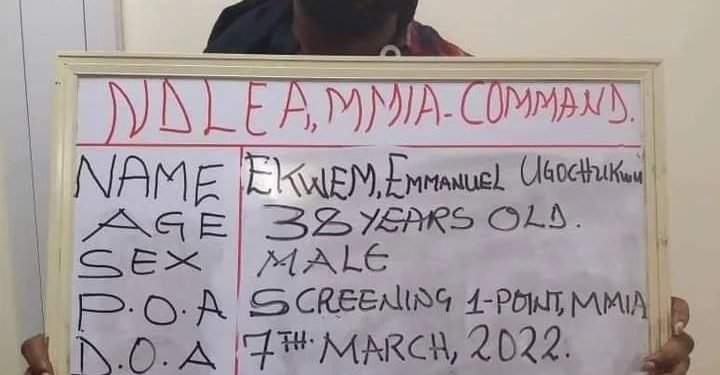 NDLEA, MMIA-COMMAND.
NAME EKWEM, EMMANUEL UGOCHUKWU
AGE 38 YEARS OLD.
SEX MALE
P.O.A SCREENING 1-POINT, MMIA
D.O.A 7TH. MARCH, 2022.